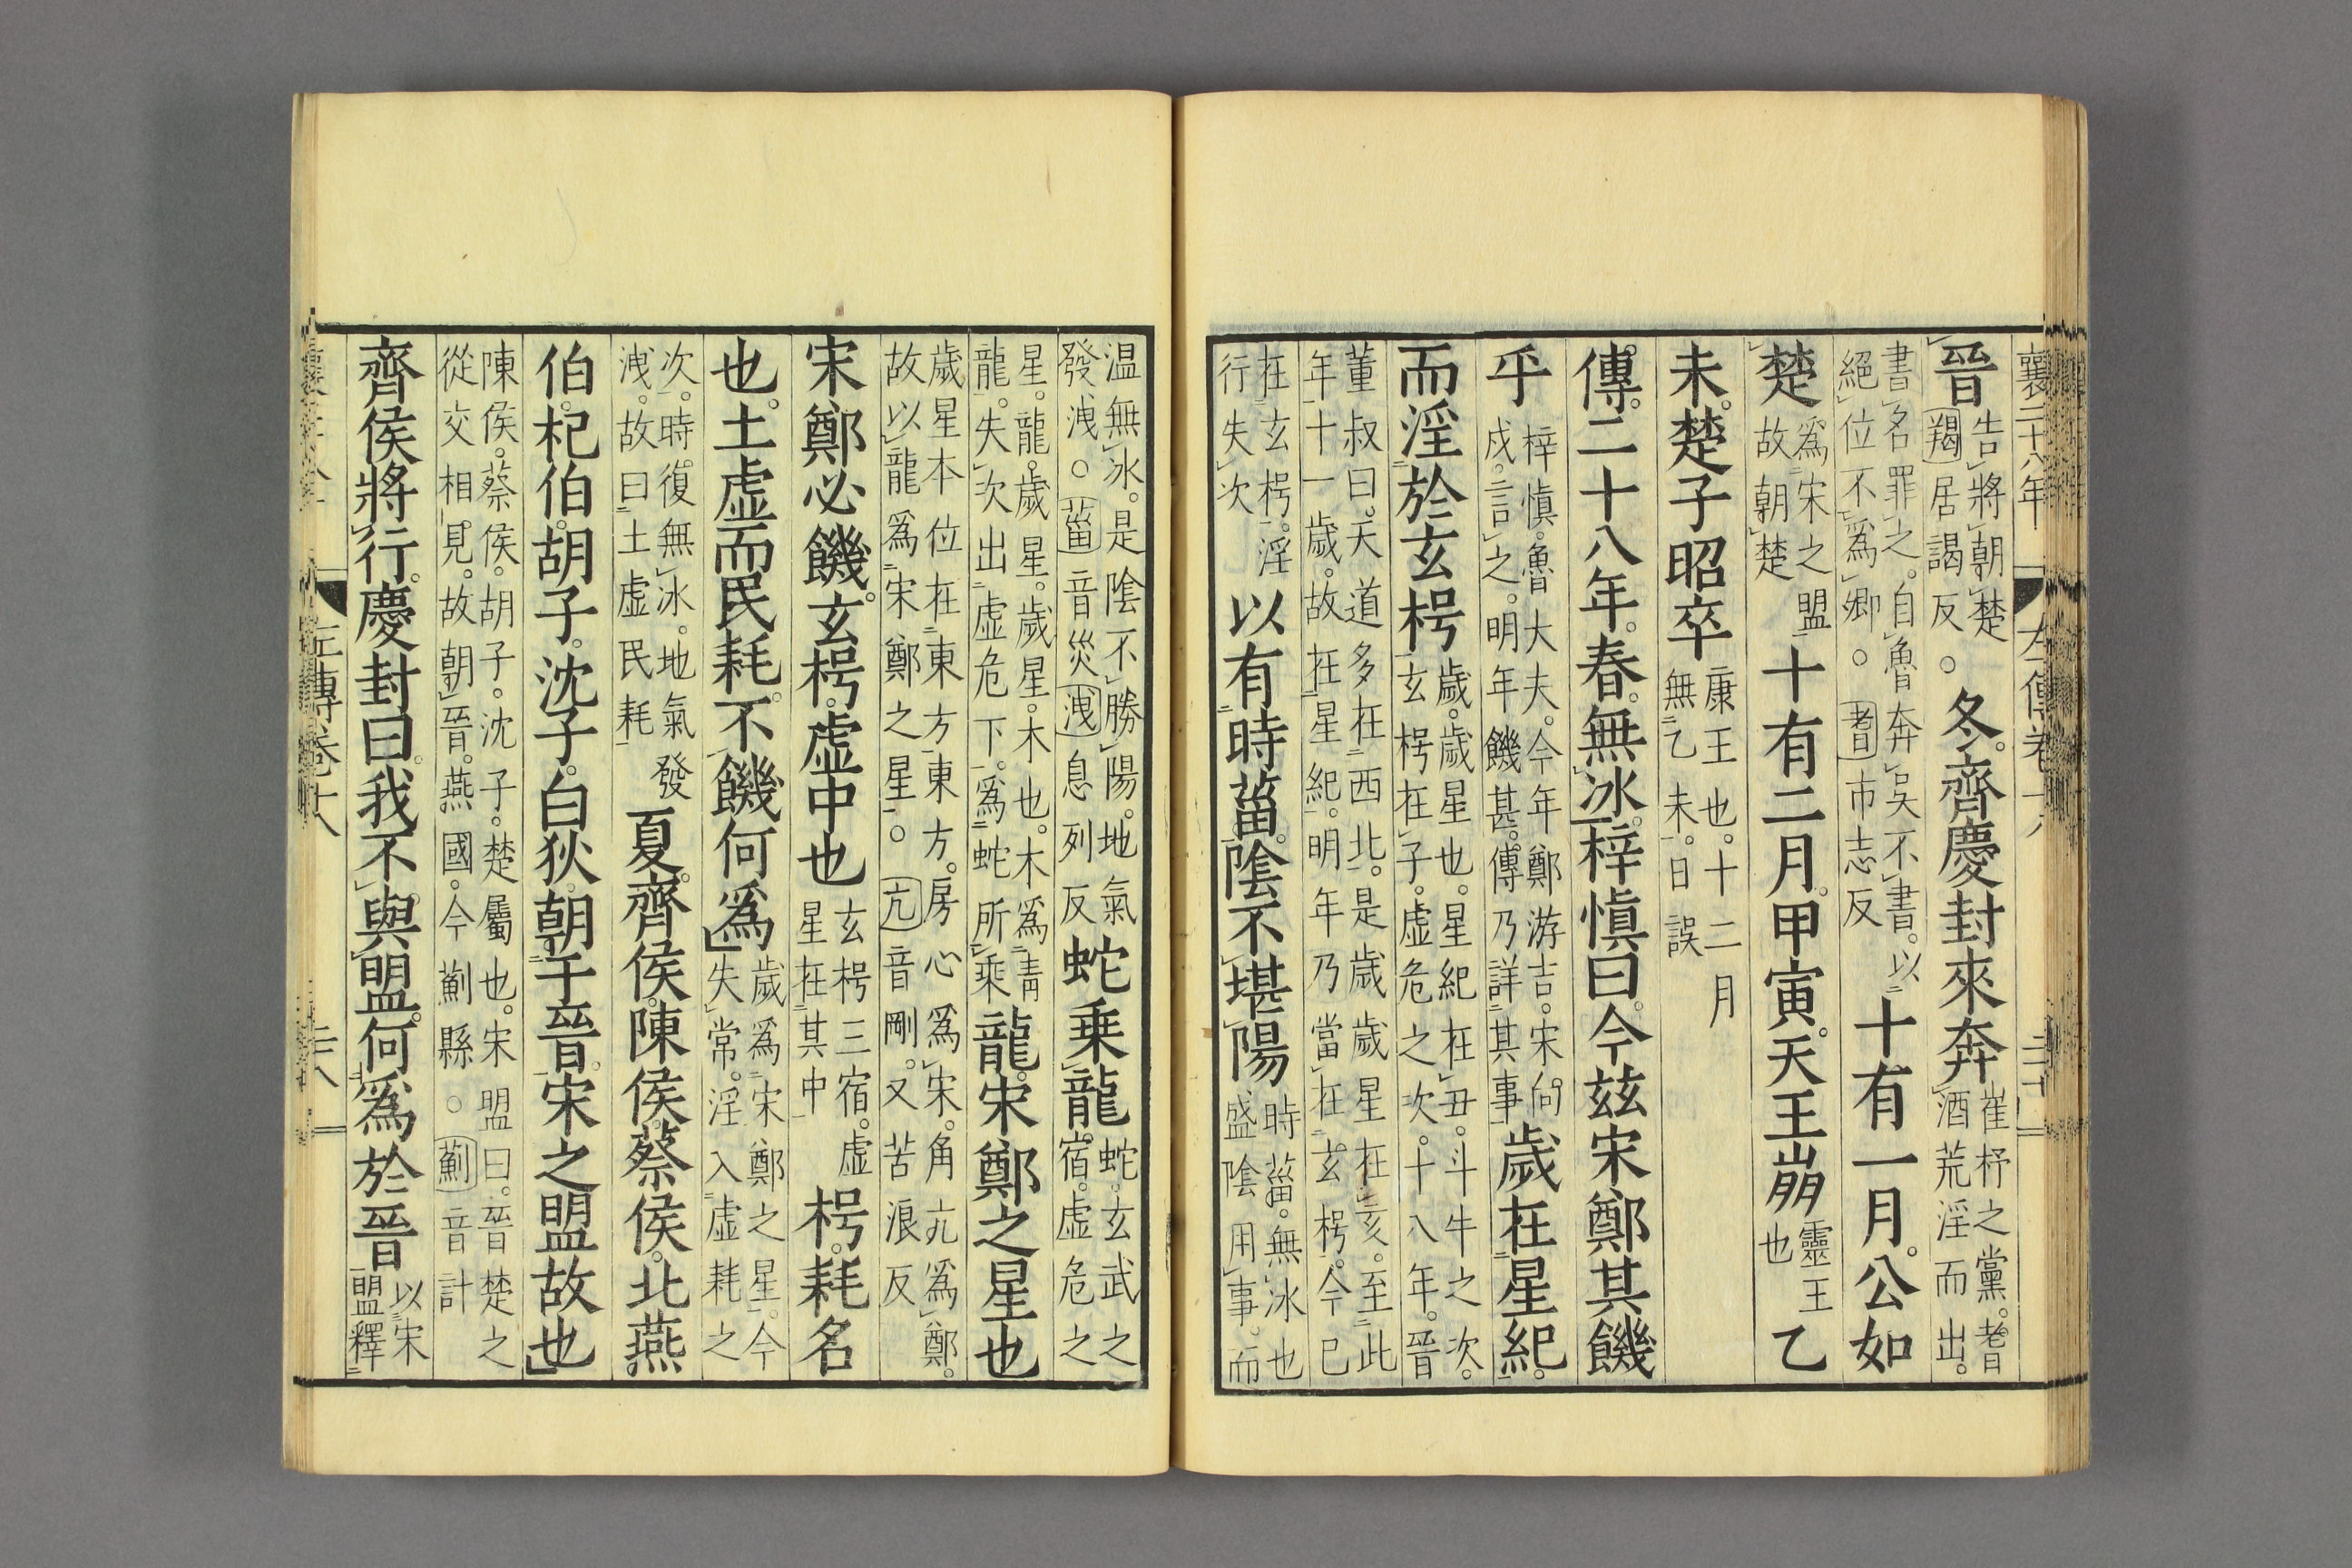 襄二十八年 左傳卷十八
晉告將朝楚羯居謁反○冬齊慶封來奔崔杼之黨耆酒荒淫而出
書名罪之自魯奔吳不書以絕位不爲卿○耆市志反十有一月公如
楚爲宋之盟故朝楚十有二月甲寅天王崩靈王也乙
未楚子昭卒康王也十二月無乙未日誤
傳二十八年春無冰梓愼曰今玆宋鄭其饑
乎梓愼魯大夫今年鄭游吉宋向戌言之明年饑甚傳乃詳其事歲在星紀
而淫於玄枵歲歲星也星紀在丑斗牛之次玄枵在子虛危之次十八年晉
董叔曰天道多在西北是歲歲星在亥至此年十一歲故在星紀明年乃當在玄枵今已
在玄枵淫行失次以有時菑陰不堪陽時菑無冰也盛陰用事而
温無冰是陰不勝陽地氣發洩○菑音災洩息列反蛇乗龍蛇玄武之宿虛危之
星龍歲星歲星木也木爲青龍失次出虛危下爲蛇所乘龍宋鄭之星也
歲星本位在東方東方房心爲宋角亢爲鄭故以龍爲宋鄭之星○亢音剛又苦浪反
宋鄭必饑玄枵虛中也玄枵三宿虛星在其中枵耗名
也土虛而民耗不饑何爲歲爲宋鄭之星今失常淫入虛耗之
次時復無冰地氣發洩故曰土虛民耗夏齊侯陳侯蔡侯北燕
伯杞伯胡子沈子白狄朝于晉宋之盟故也
陳侯蔡侯胡子沈子楚屬也宋盟曰晉楚之從交相見故朝晉燕國今薊縣○薊音計
齊侯將行慶封曰我不與盟何爲於晉以宋盟釋